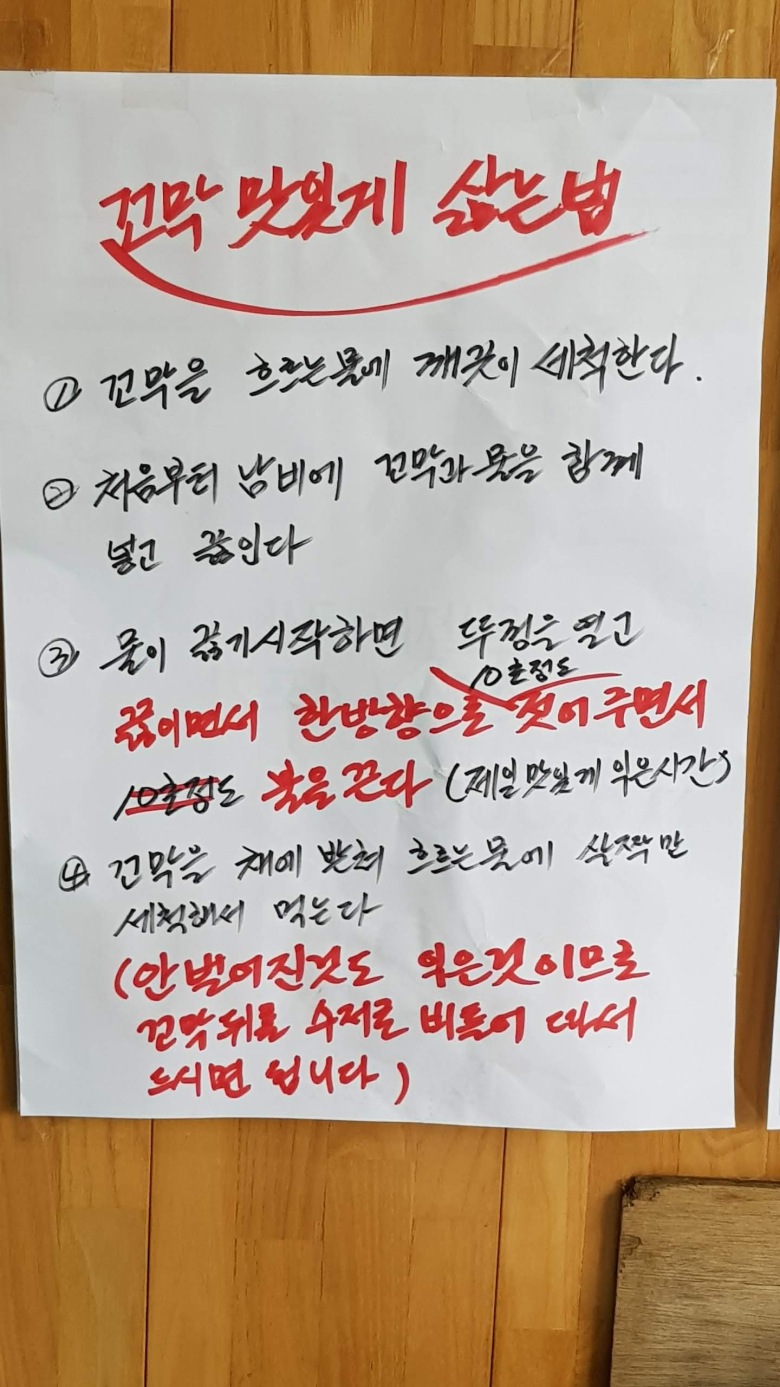 꼬막 맛있게 삶는법
① 꼬막을 흐르는물에 깨끗이 세척한다.
② 처음부터 남비에 꼬막과 물을 함께
넣고 끓인다
③ 물이 끓기시작하면 뚜껑을 열고
10초정도
끓이면서 한방향으로 젓어주면서
10초정도 불을끈다 (제일맛있게 익은시간)
④ 꼬막을 채에 받쳐 흐르는물에 살짝만
세척해서 먹는다
(안벌어진것도 익은것이므로
꼬막뒤를 수저로 비틀어 따서
드시면 됩니다)